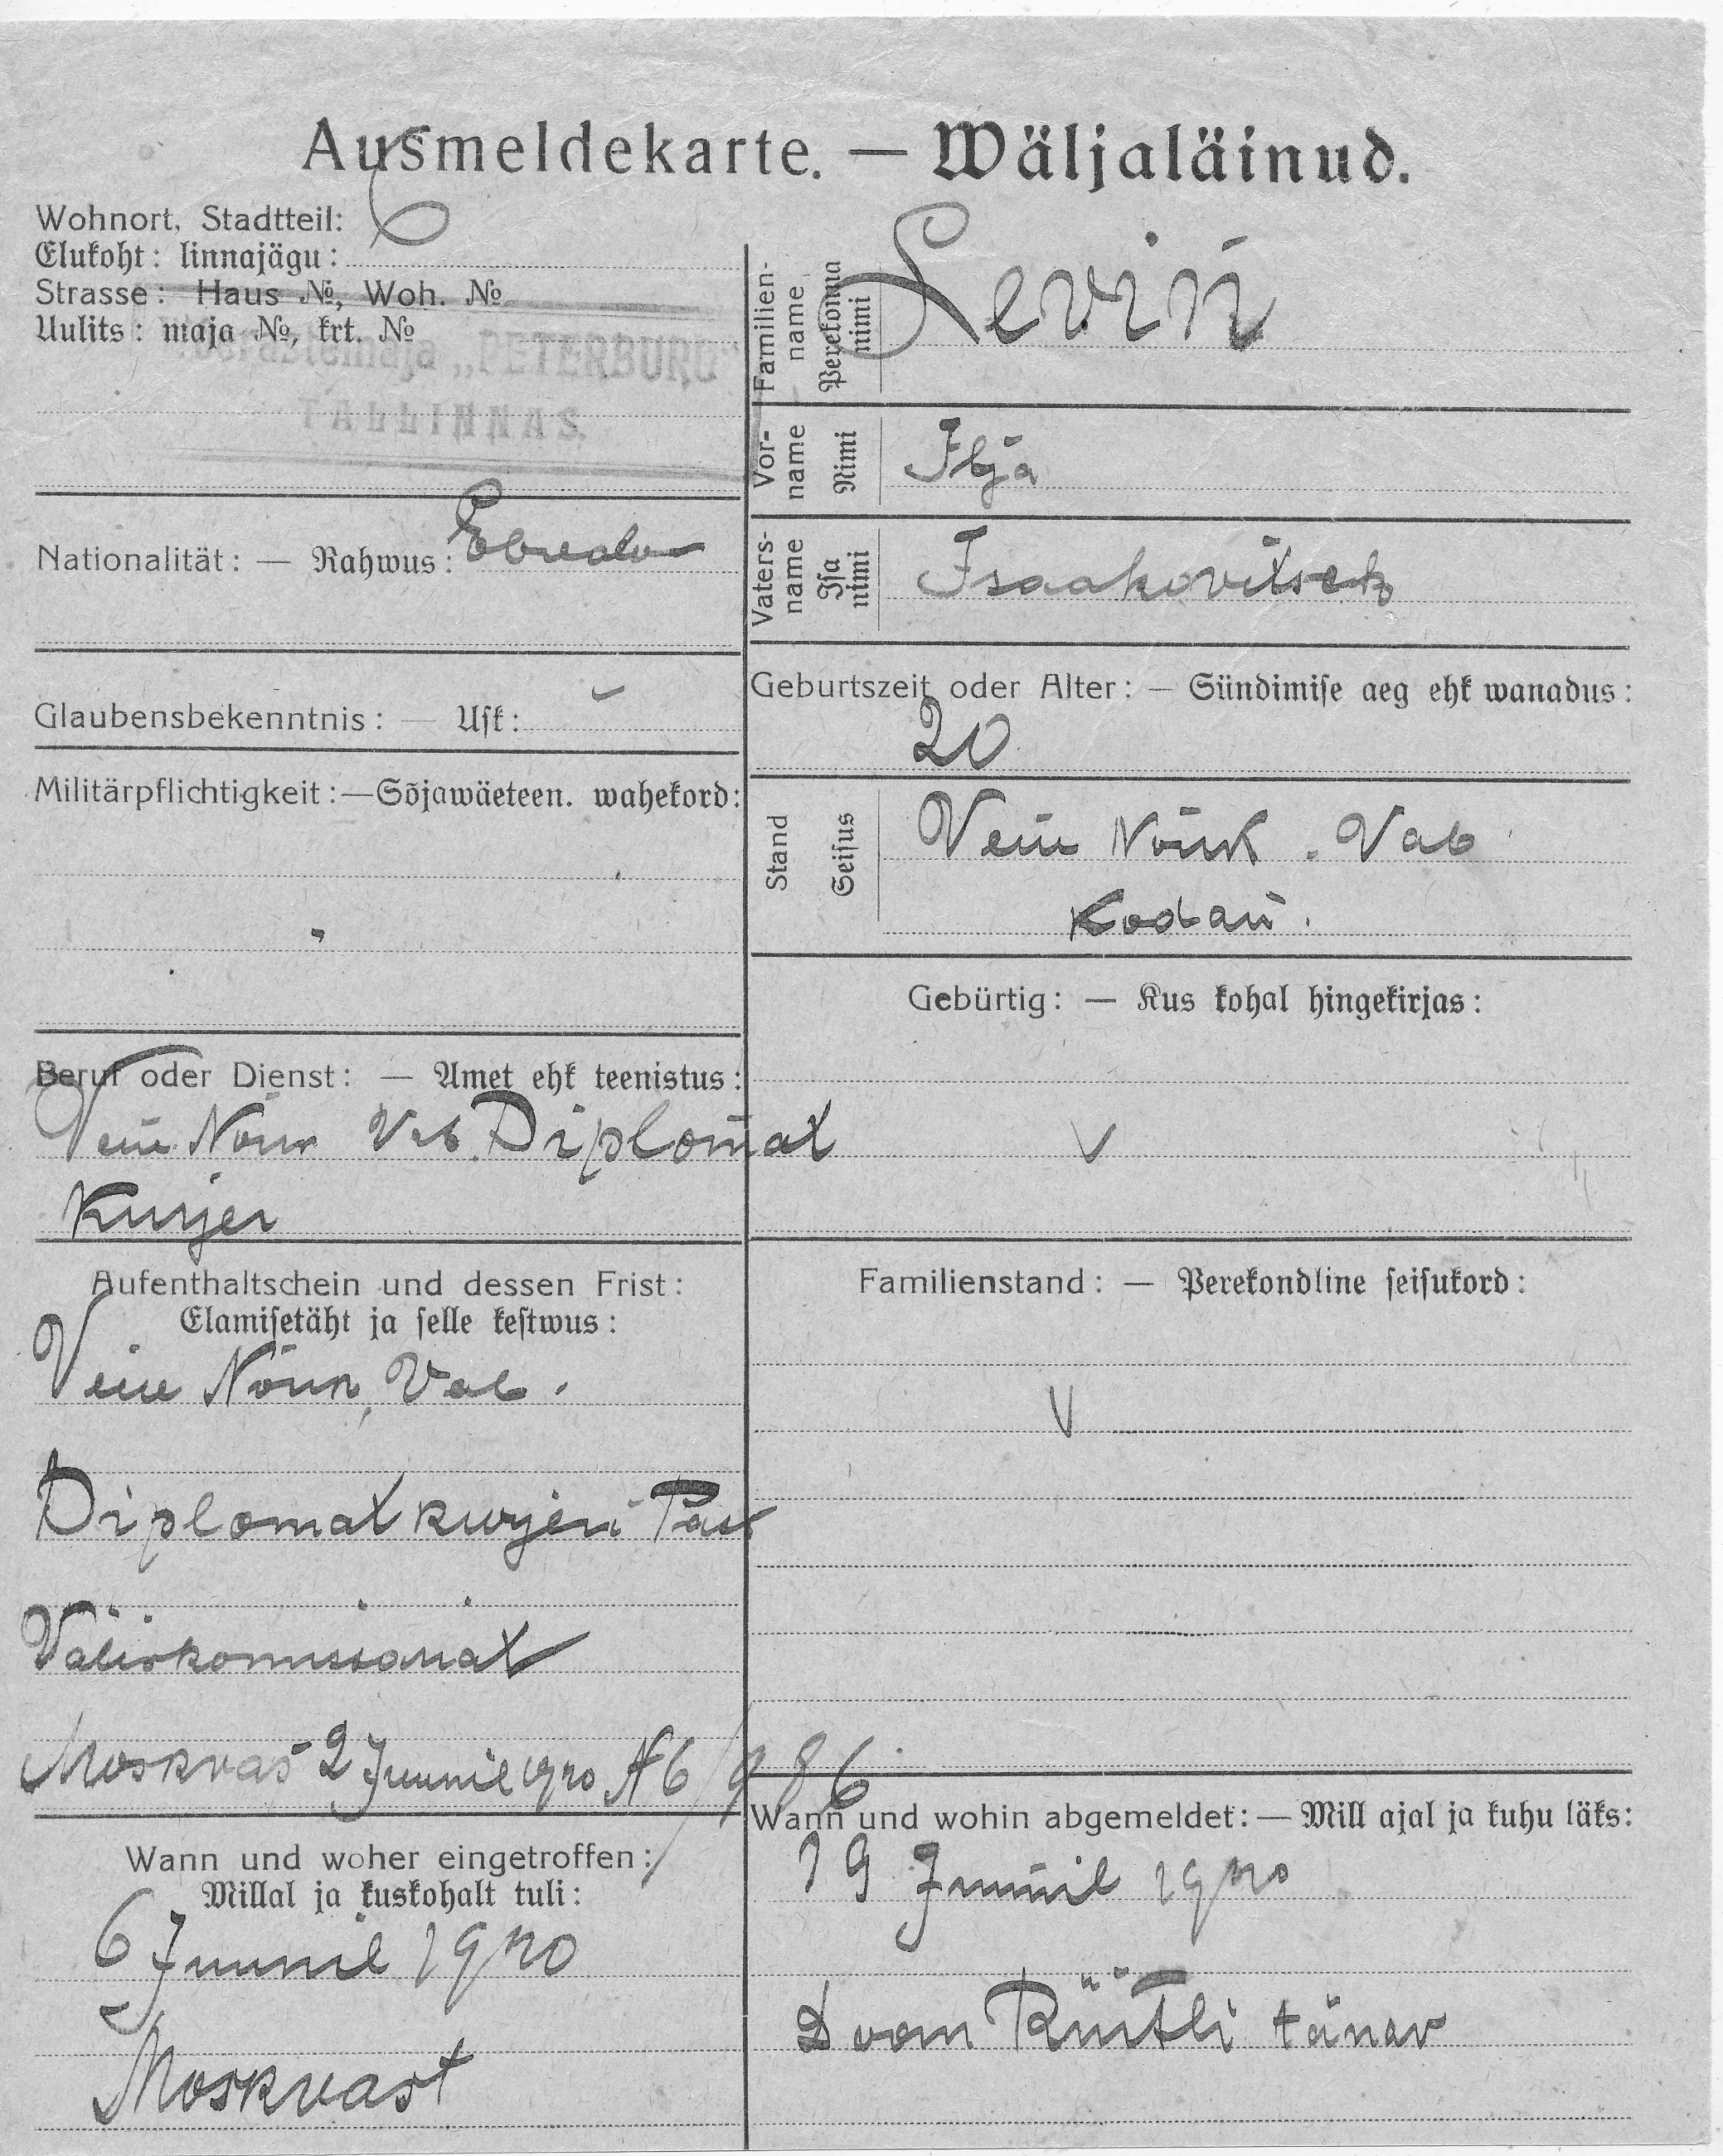 Ausmeldekarte. — Wäljaläinud.
Wohnort, Stadtteil:
Elukoht: linnajägu: 6
Strasse: Haus №, Woh. №
Uulits: maja №, krt. №
"PETERBURG"
TALLINNAS.
Nationalität: — Rahwus:
Glaubensbekenntnis: — Usk:
Militärpflichtigkeit:—Sõjawäeteen. wahekord:
Beruf oder Dienst: — Amet ehk teenistus:
Diplomat
Kurjer
Aufenthaltschein und dessen Frist:
Elamisetäht ja selle kestwus:
Vene Nõuk. Vab.
Diplomat kurjeri Pass
Moskvas 2 Juunil 1920 № 6/986
Wann und woher eingetroffen:
Millal ja kuskohalt tuli:
6 Juunil 1920
Moskvast
Familien-
name
Perekonna
nimi
Levin
Vor-
name
Nimi
Ilja
Vaters-
name
Isa
nimi
Isaakovitsch
Geburtszeit oder Alter: — Sündimise aeg ehk wanadus:
20
Stand
Seisus
Vene Nõuk. Vab
Kodan.
Gebürtig: — Kus kohal hingekirjas:
Familienstand: — Perekondline seisukord:
Wann und wohin abgemeldet:— Mill ajal ja kuhu läks:
19 Juunil 1920
Rüütli tänav